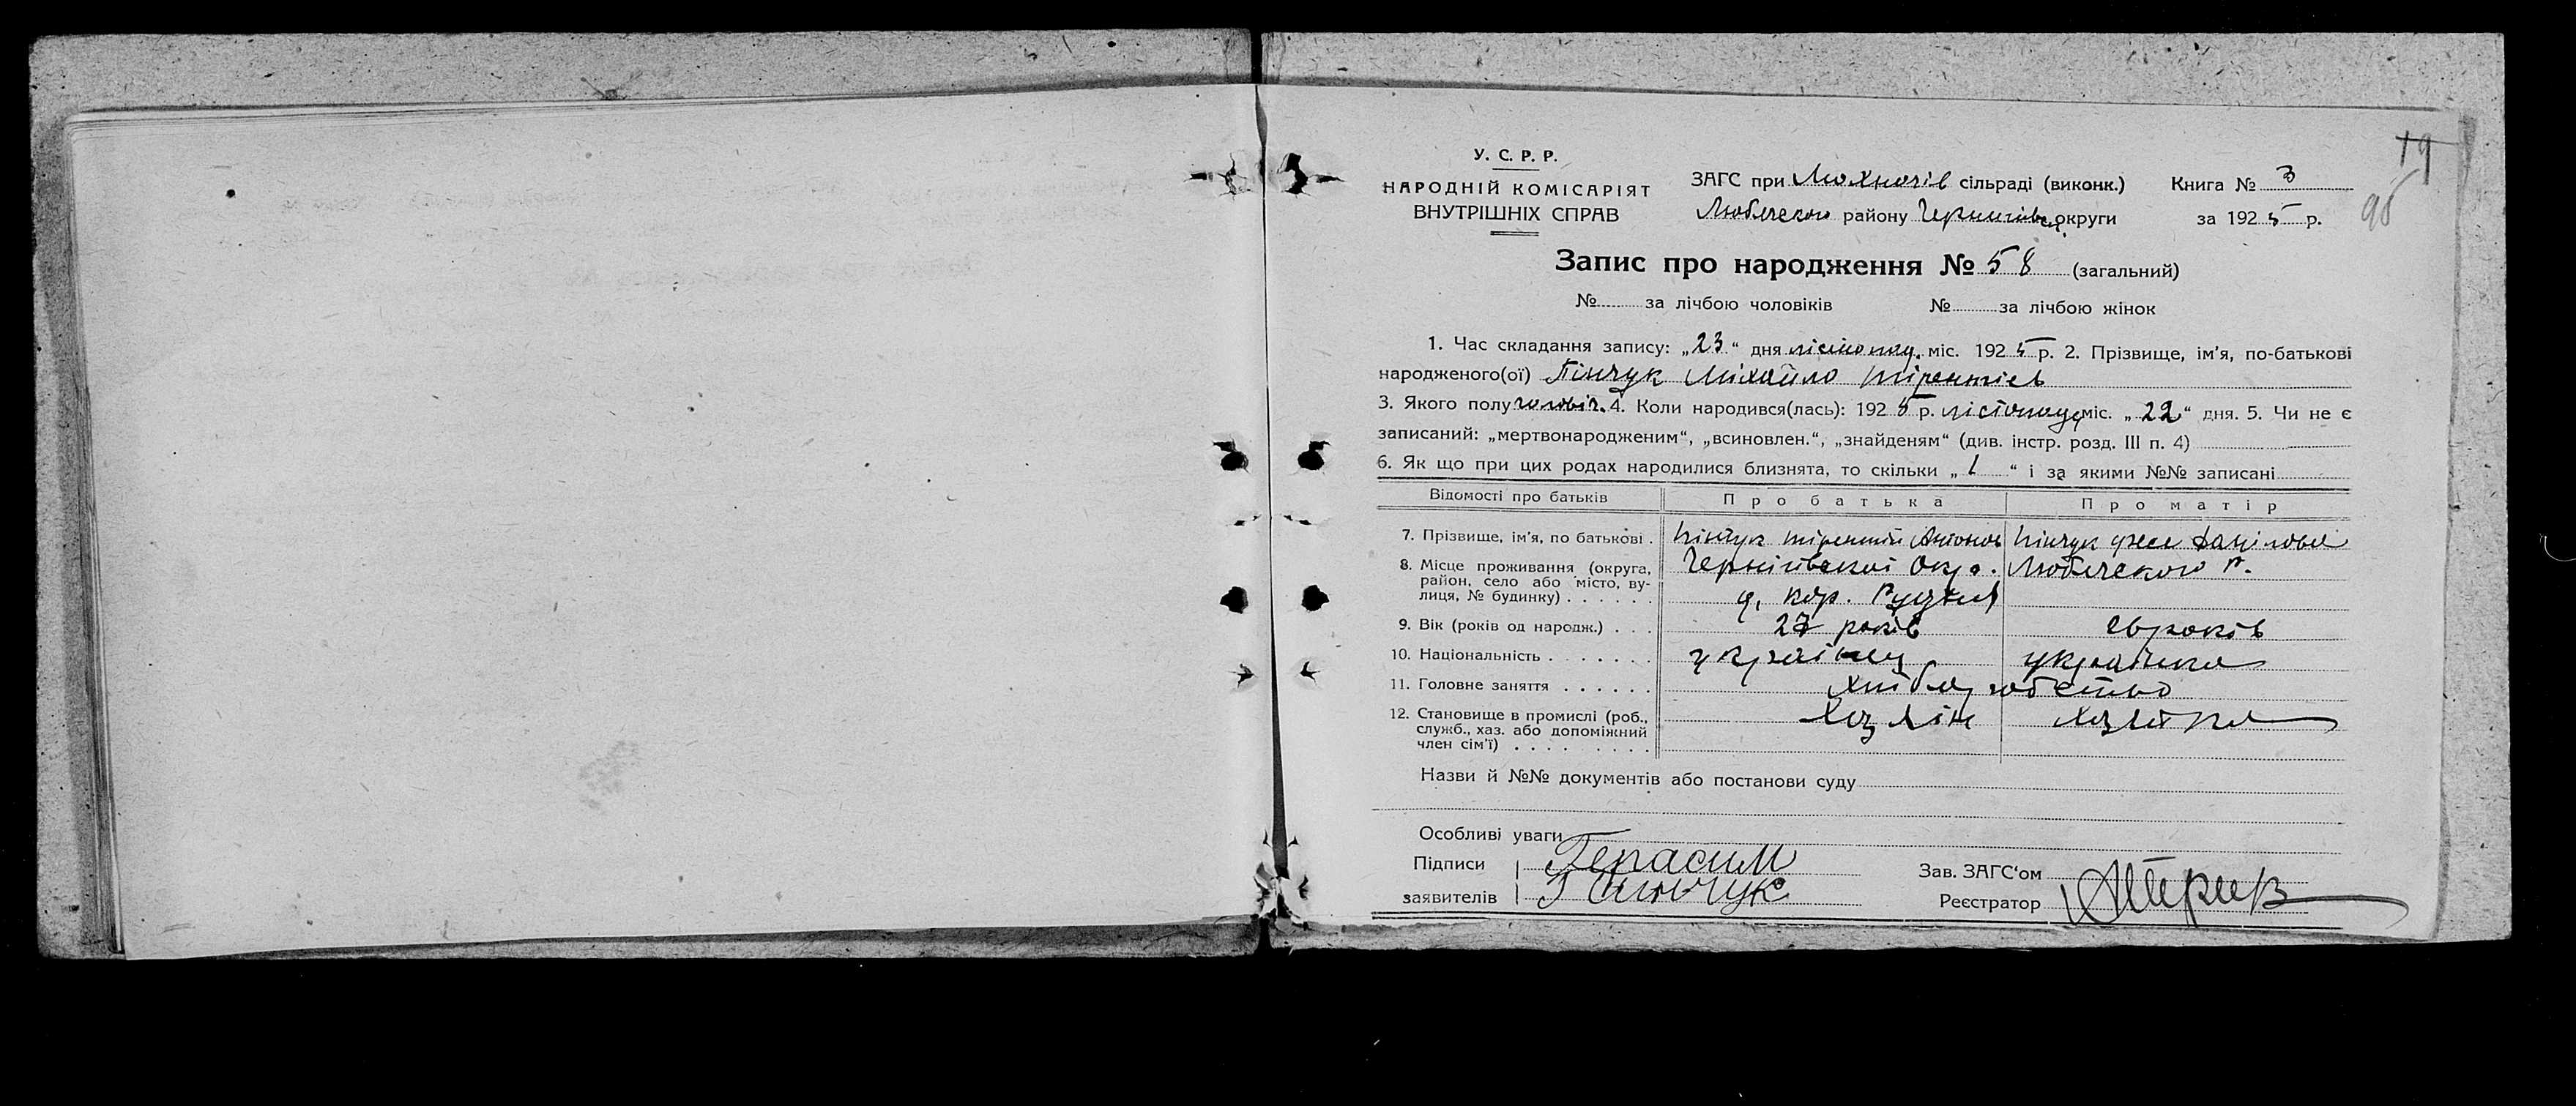 19
95
У. С. Р. Р.
НАРОДНІЙ КОМІСАРІЯТ
ВНУТРІШНІХ СПРАВ
ЗАГС при Мохначів сільраді (виконк.) Книга № 3
Любечского району Чернигівск. округи за 1925 р.
Запис про народження № 58 (загальний)
№ за лічбою чоловіків № за лічбою жінок
1. Час складання запису: „23“ дня лістопад. міс. 1925 р. 2. Прізвище, ім'я, по-батькові
народженого(ої) Пінчук Міхайло Тірентіев
3. Якого полу чоловіч. 4. Коли народився(лась): 1925 р. лістопаду міс. „22“ дня. 5. Чи не є
записаний: „мертвонародженим“, „всиновлен.“, „знайденям“ (див. інстр. розд. III п. 4)
6. Як що при цих родах народилися близнята, то скільки „1“ і за якими №№ записані
Відомості про батьків Про батька Про матір
7. Прізвище, ім'я, по батькові . Пінчук Тірентій Антонов Пінчук Данілова
8. Місце проживання (округа, Чернігівскоі Окр. Любечского р.
район, село або місто, ву-
лиця, № будинку) . . . . . . д. Кор. Рудня
9. Вік (років од народж.) . . . 27 років років
10. Національність . . . . . . . украінец украінка
11. Головне заняття . . . . . . хліборобство
12. Становище в промислі (роб., Хазяін Хазяйка
служб., хаз. або допоміжний
член сім'ї) . . . . . . . . .
Назви й №№ документів або постанови суду
Особливі уваги
Підписи Герасим
Зав. ЗАГС'ом
заявителів Пинчук
Реєстратор